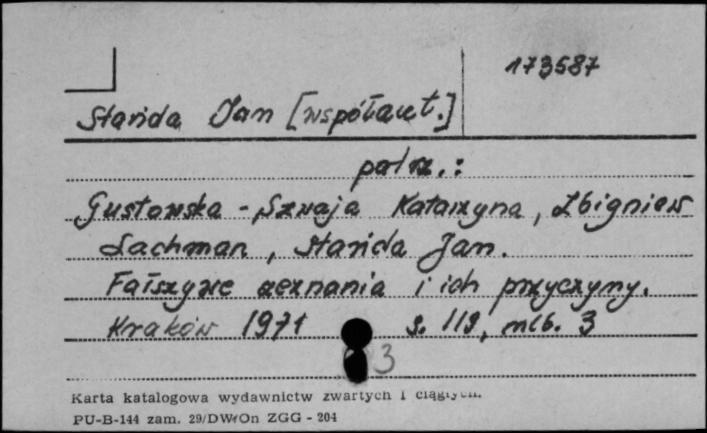 173587
Stańda Jan [współaut.]
patrz.:
Gustowska-Szwaja Katarzyna, Zbigniew
Lachman, Stańda Jan.
Fałszywe zeznania i ich przyczyny.
Kraków 1971 s. 119, nlb. 3
3
Karta katalogowa wydawnictw zwartych i ciągłych.
PU-B-144 zam. 29/DWrOn ZGG - 204